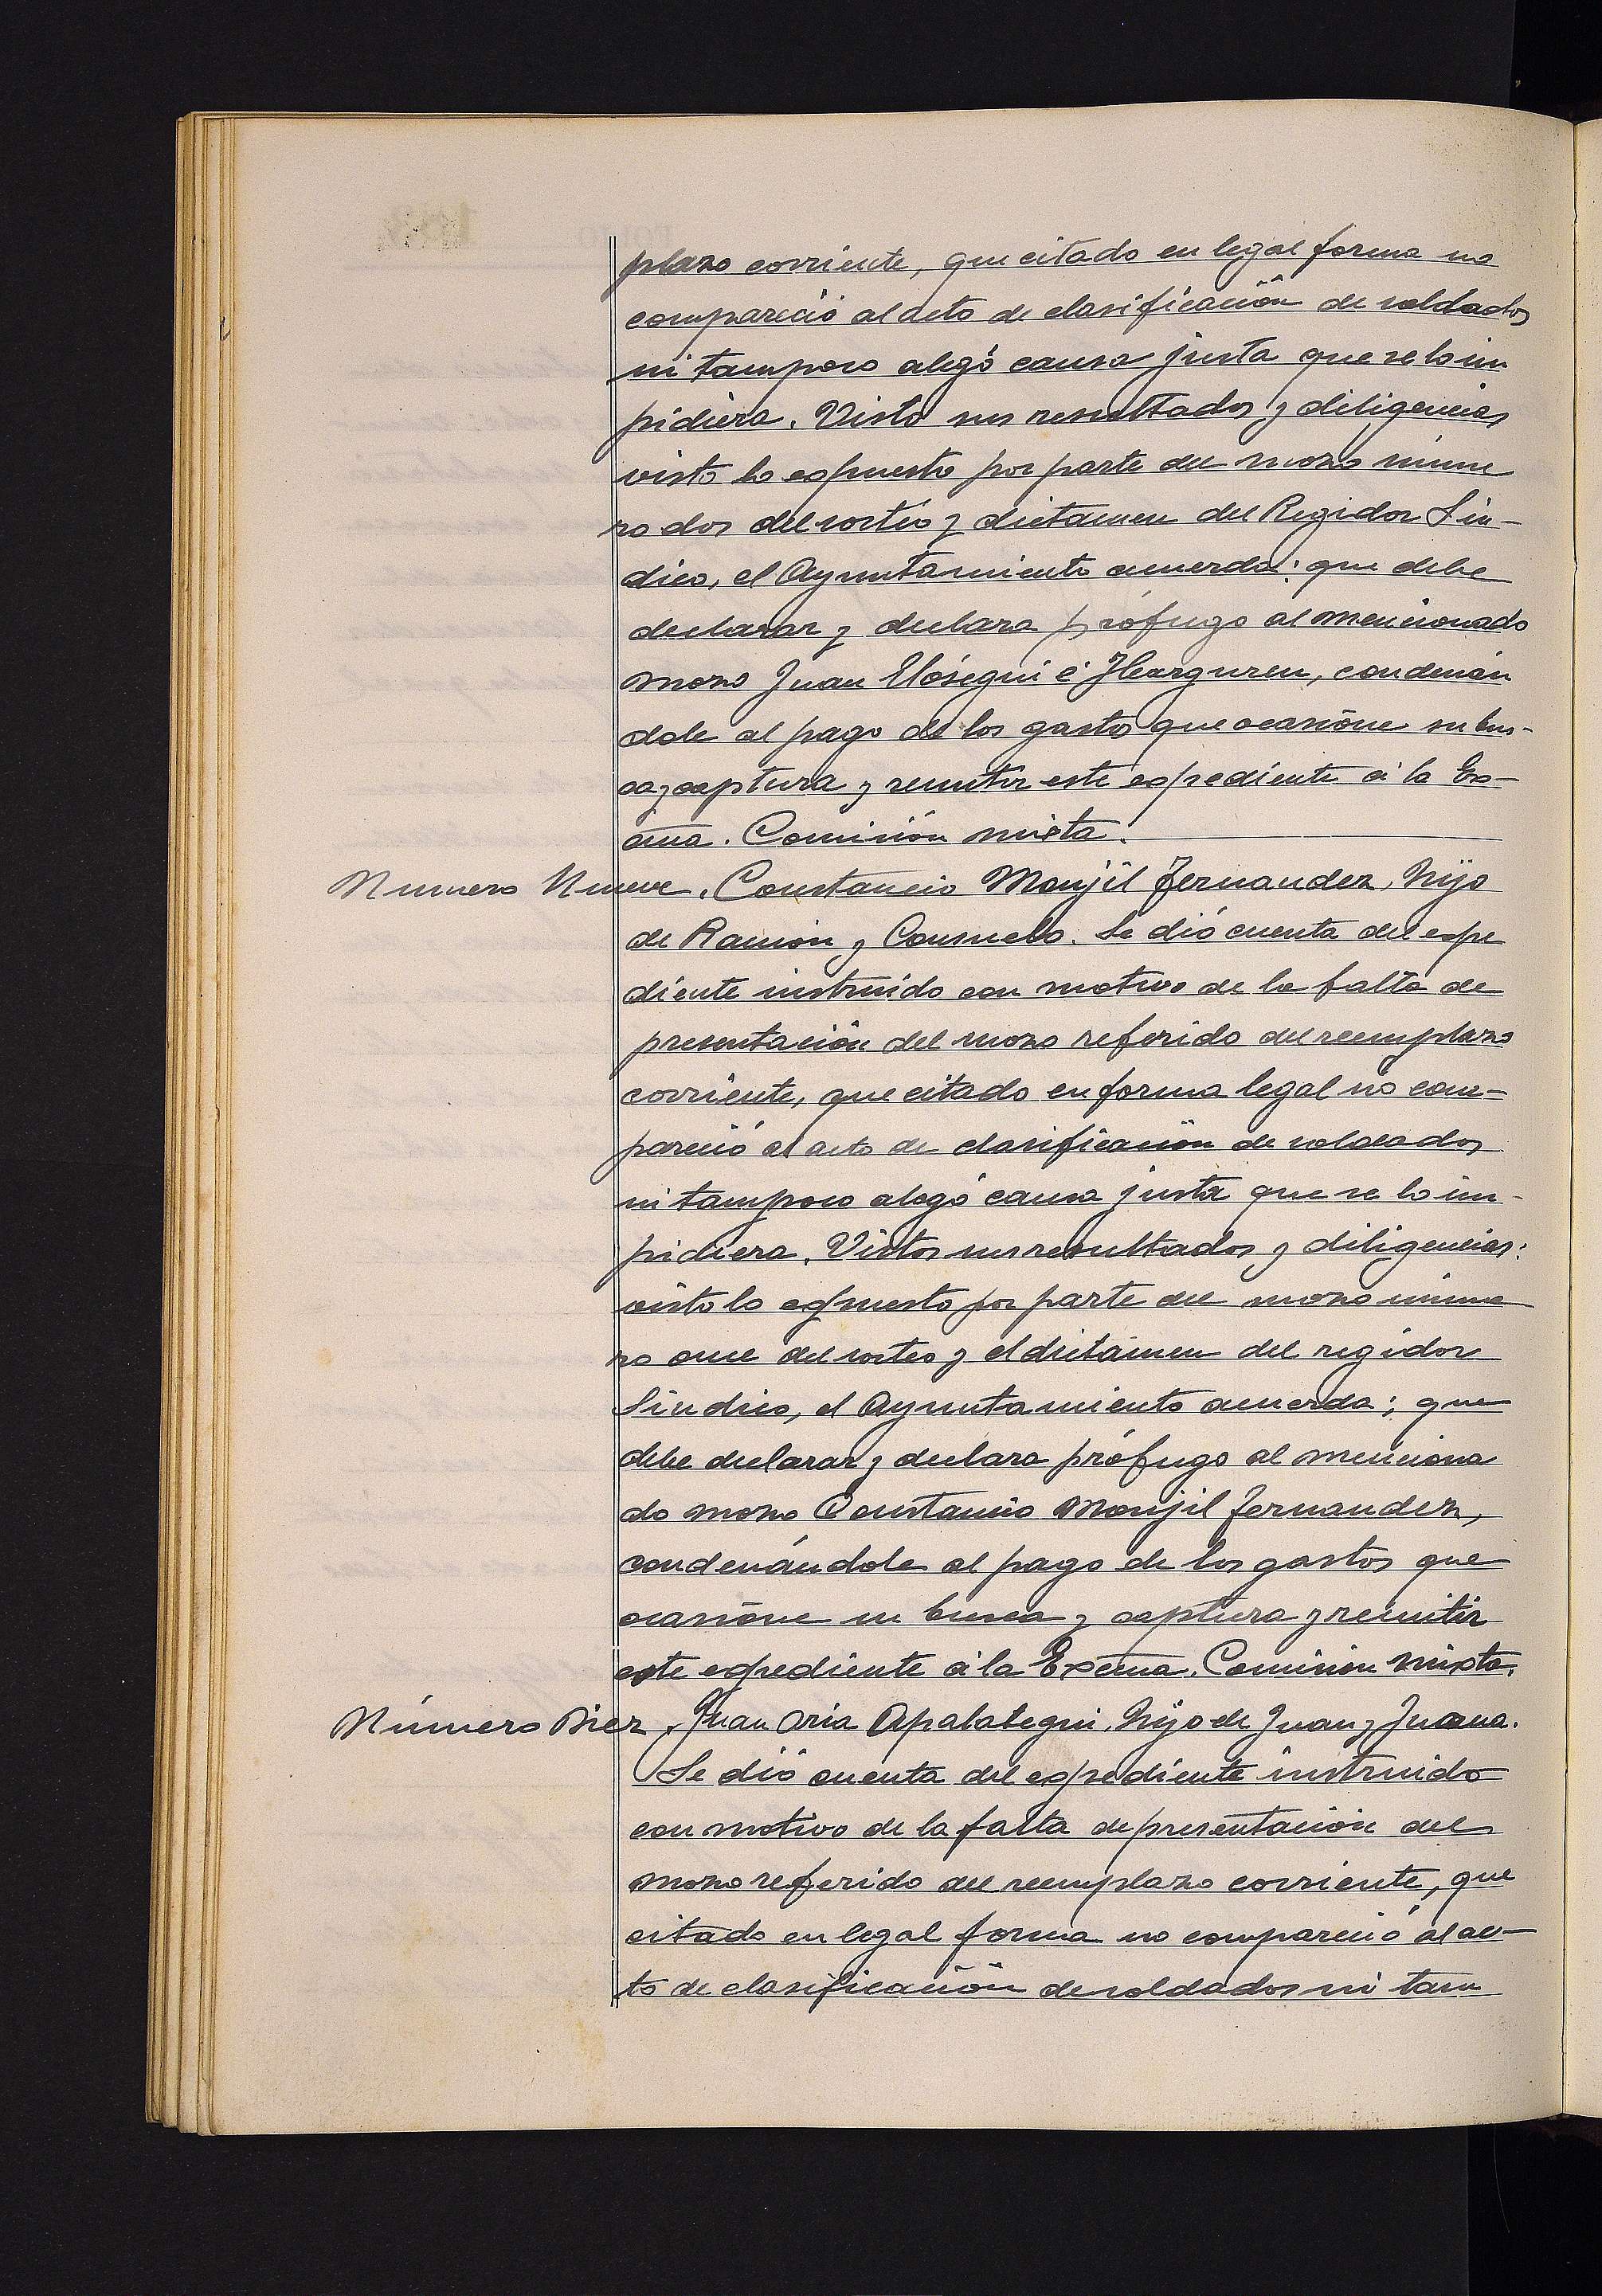 plazo corriente, que citado en legal forma no
compareció al acto de clasificación de soldados
ni tampoco alegó causa justa que se lo im
pidiera. Visto sus resultados y diligencias
visto lo espuesto por parte del mozo núme
ro dos del sorteo y dictamen del Regidor Sín-
dico, el Ayuntamiento acuerda: que debe
declarar y declara prófugo al mencionado
mozo Juan Elósegui é Ibarguren, condenán
dole al pago de los gastos que ocasióne su bus-
ca y captura y remitir este espediente á la Ex-
cma. Comisión mixta.
Numero Nueve. Constancio Monjil Fernandez, hijo
de Ramón y Consuelo. Se dió cuenta del espe
diente instruido con motivo de la falta de
presentación del mozo referido del reemplazo
corriente, que citado en forma legal no com-
pareció al acto de clasificación de soldados
ni tampoco alegó causa justa que se lo im-
pidiera. Vistos sus resultados y diligencias:
visto lo espuesto por parte del mozo núme
ro once del sorteo y el dictámen del regidor
Síndico, el Ayuntamiento acuerda; que
debe declarar y declara prófugo al menciona
do mozo Constancio Monjil Fernandez,
condenándole al pago de los gastos que
ocasione su busca y captura y remitir
este espediente á la Excma. Comision mixta.
Número Diez. Juan Oria Apalategui, hijo de Juan y Juana.
Se dió cuenta del espediente instruido
con motivo de la falta de presentación del
mozo referido del reemplazo corriente, que
citado en legal forma no compareció al ac-
to de clasificación de soldados ni tam